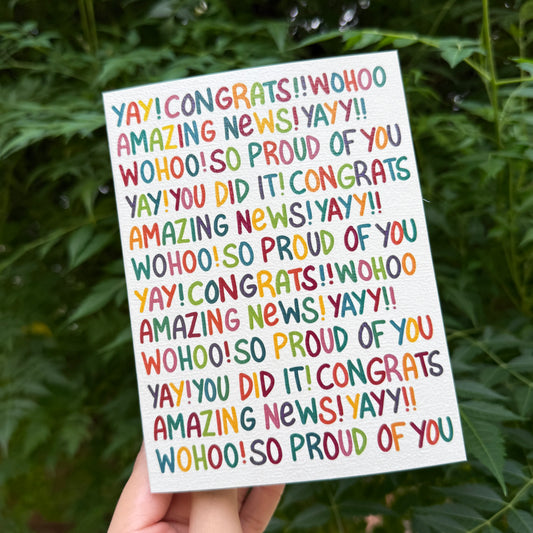 YAY! CONGRATS!! WOHOO
AMAZING NeWS! YAYY!!
WOHOO! SO PROUD OF YOU
YAY! YOU DID IT! CONGRATS
AMAZING NeWS! YAYY!!
WOHOO! SO PROUD OF YOU
YAY! CONGRATS!! WOHOO
AMAZING NeWS! YAYY!!
WOHOO! SO PROUD OF YOU
YAY! YOU DID IT! CONGRATS
AMAZING NeWS! YAYY!!
WOHOO! SO PROUD OF YOU